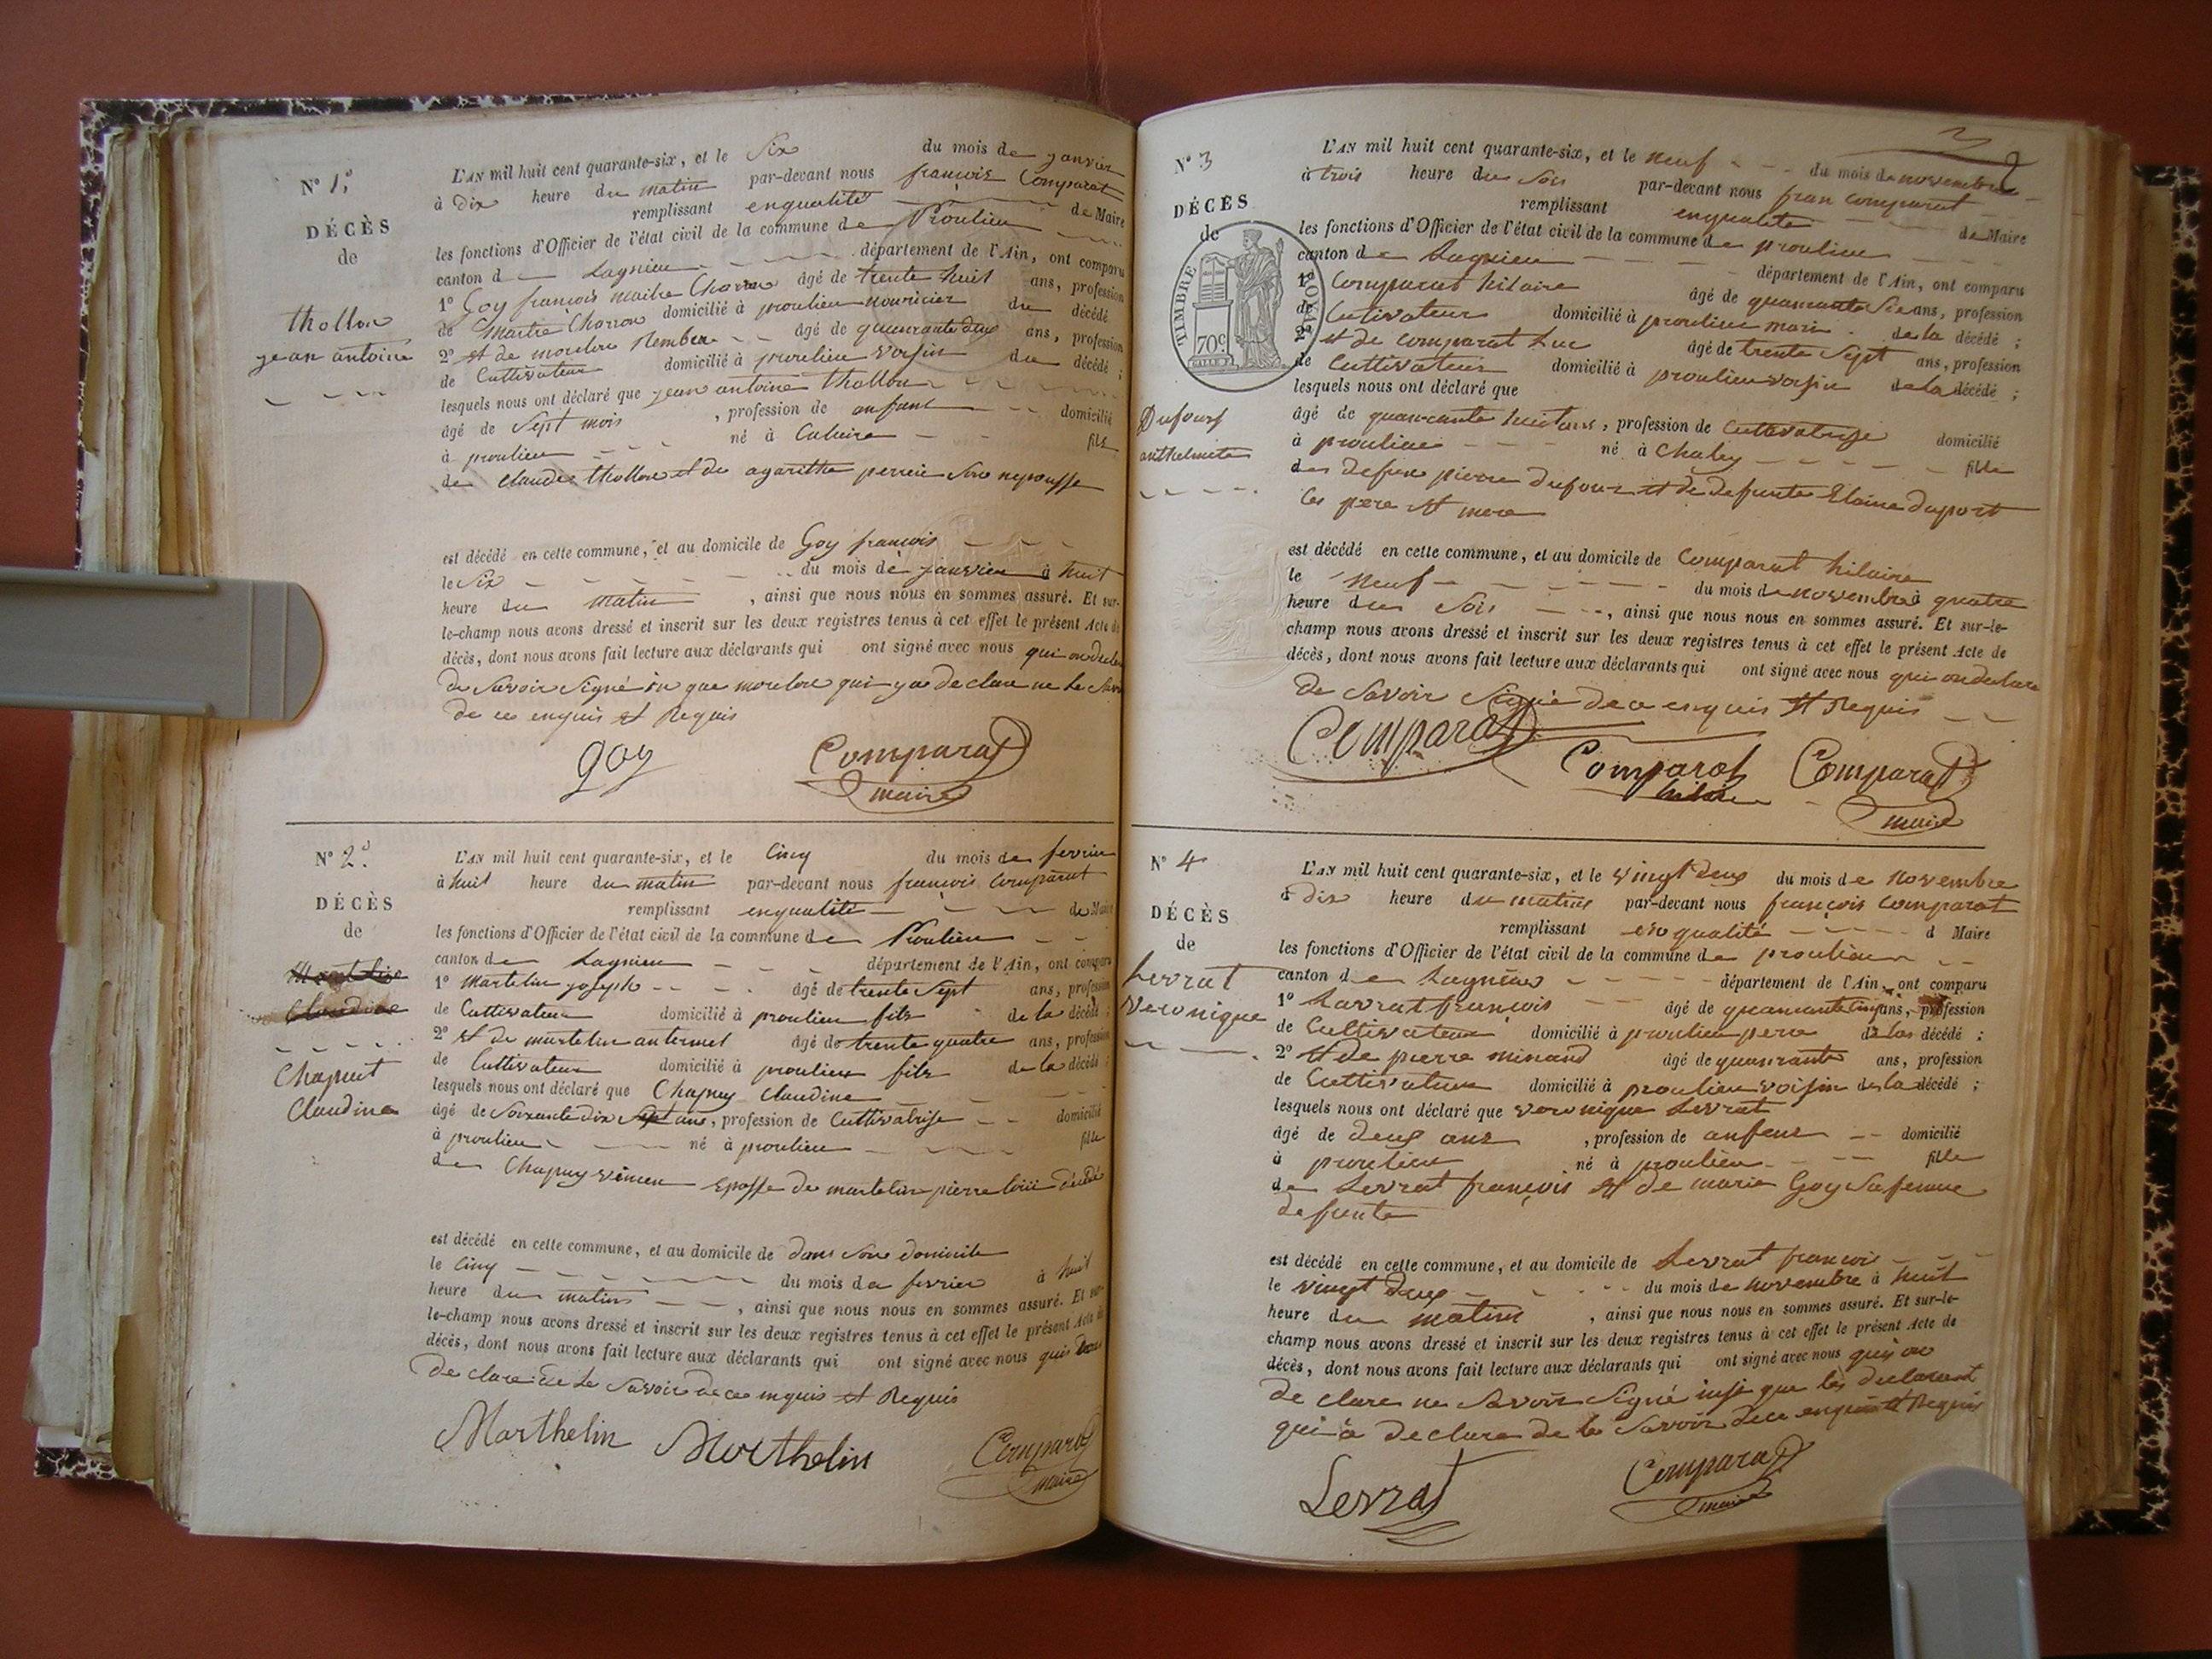 N° 1.°
DÉCÈS
de
thollon
jean antoine
L'AN mil huit cent quarante-six, et le Six du mois de janvier
à dix heure du matin par-devant nous francois Comparat
remplissant enqualité de Maire
les fonctions d'Officier de l'état civil de la commune de Proulieu
canton de Lagnieu département de l'Ain, ont comparu
1° Goy francois maitre Charron âgé de trente huit ans, profession
de Maitre Charron domicilié à proulieu nouricier du décédé
2° et de âgé de quanrante deux ans, profession
de Cultivateur domicilié à proulieu voisin du décédé ;
lesquels nous ont déclaré que jean antoine thollon
âgé de Sept mois , profession de anfant domicilié
à proulieu né à Caluire fils
de Claude thollon et de agarithe perrin Son nepousse
est décédé en cette commune, et au domicile de Goy francois
le Six du mois de janvier à huit
heure du matin , ainsi que nous nous en sommes assuré. Et sur-
le-champ nous avons dressé et inscrit sur les deux registres tenus à cet effet le présent Acte de
décès, dont nous avons fait lecture aux déclarants qui ont signé avec nous qui on
de Savoir Signé que qui declare ne le
de ce enquis et Requis
goy Comparat
maire
N° 2.°
DÉCÈS
de
Claudine
Chapuit
Claudine
L'AN mil huit cent quarante-six, et le Cinq du mois de fevrier
à huit heure du matin par-devant nous francois Comparat
remplissant enqualité de Maire
les fonctions d'Officier de l'état civil de la commune de Proulieu
canton de Lagnieu département de l'Ain, ont comparu
1° Martelin joseph âgé de trente Sept ans, profession
de Cultivateur domicilié à proulieu fils de la décédé ;
2° et de martelin antermet âgé de trente quatre ans, profession
de Cultivateur domicilié à proulieu fils de la décédé ;
lesquels nous ont déclaré que Chapuy Claudine
âgé de Soixante dix Sept ans, profession de Cultivatrise domicilié
à proulieu né à proulieu fille
de Chapuy Eposse de martelin pierre
est décédé en cette commune, et au domicile de dans Son domicile
le Cinq du mois de fevrier à huit
heure du matin , ainsi que nous nous en sommes assuré. Et sur-
le-champ nous avons dressé et inscrit sur les deux registres tenus à cet effet le présent Acte de
décès, dont nous avons fait lecture aux déclarants qui ont signé avec nous
De clare le Savoir de ce enquis et Requis
Marthelin Marthelin Comparat
maire
N° 3
DÉCÈS
de
TIMBRE ROYAL
70 c
Dufour
anthelmete
L'AN mil huit cent quarante-six, et le neuf du mois de novembre
à trois heure du Soir par-devant nous fran comparat
remplissant enqualité de Maire
les fonctions d'Officier de l'état civil de la commune de proulieu
canton de Lagnieu département de l'Ain, ont comparu
1° Comparat hilaire âgé de quanrante Sie ans, profession
de Cutivateur domicilié à proulieu mari de la décédé ;
2° et de comparat Luc âgé de trente Sept ans, profession
de Cultivateur domicilié à proulieu voisin de la décédé ;
lesquels nous ont déclaré que
âgé de quanrante huit ans, profession de Cultivatrisse domicilié
à proulieu né à Chaley fille
de defun pierre dufour et de defunte Elaine duport
Ces pere et mere
est décédé en cette commune, et au domicile de Comparat hilaire
le Neuf du mois de novembre à quatre
heure du Soir , ainsi que nous nous en sommes assuré. Et sur-le-
champ nous avons dressé et inscrit sur les deux registres tenus à cet effet le présent Acte de
décès, dont nous avons fait lecture aux déclarants qui ont signé avec nous qui on declare
de Savoir Signé de ce enquis et Requis
Comparat Comparat hilaire Comparat
maire
N° 4
DÉCÈS
de
Levrat
Veronique
L'AN mil huit cent quarante-six, et le vingt deux du mois de Novembre
à dix heure du matin par-devant nous françois Comparat
remplissant en qualité d Maire
les fonctions d'Officier de l'état civil de la commune de proulieu
canton de Lagnieu département de l'Ain, ont comparu
1° Lavrat francois âgé de quanrante cinq ans, profession
de Cultivateur domicilié à proulieu pere de la décédé ;
2° et de pierre minand âgé de quanrante ans, profession
de Cultivateur domicilié à proulieu voisin de la décédé ;
lesquels nous ont déclaré que veronique Levrat
âgé de deux ans , profession de anfant domicilié
à proulieu né à proulieu fille
de Levrat françois et de marie Goy Sa femme
defunte
est décédé en cette commune, et au domicile de Levrat francois
le vingt deux du mois de Novembre à huit
heure du matin , ainsi que nous nous en sommes assuré. Et sur-le-
champ nous avons dressé et inscrit sur les deux registres tenus à cet effet le présent Acte de
décès, dont nous avons fait lecture aux déclarants qui ont signé avec nous qui on
de clare ne Savoir Signé que les declarant
qui a declare de le Savoir de ce enquis et Requis
Levrat Comparat
maire